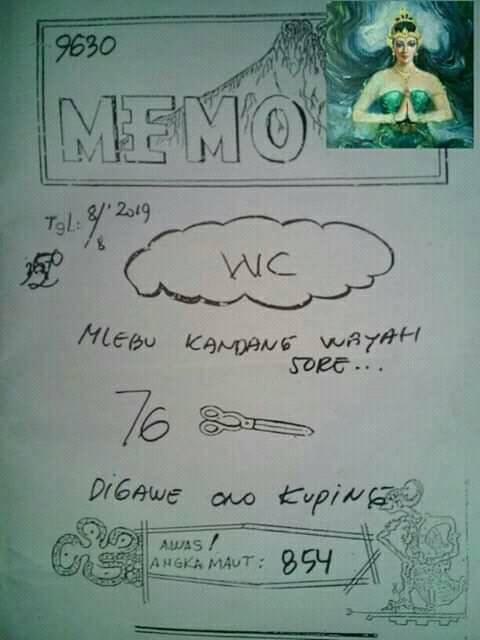 9630
MEMO
Tgl: 8/8 ' 2019
WC
MLEBU KANDANG WAYAH
SORE...
76
DIGAWE ONO KUPINGE
AWAS!
ANGKA MAUT: 854